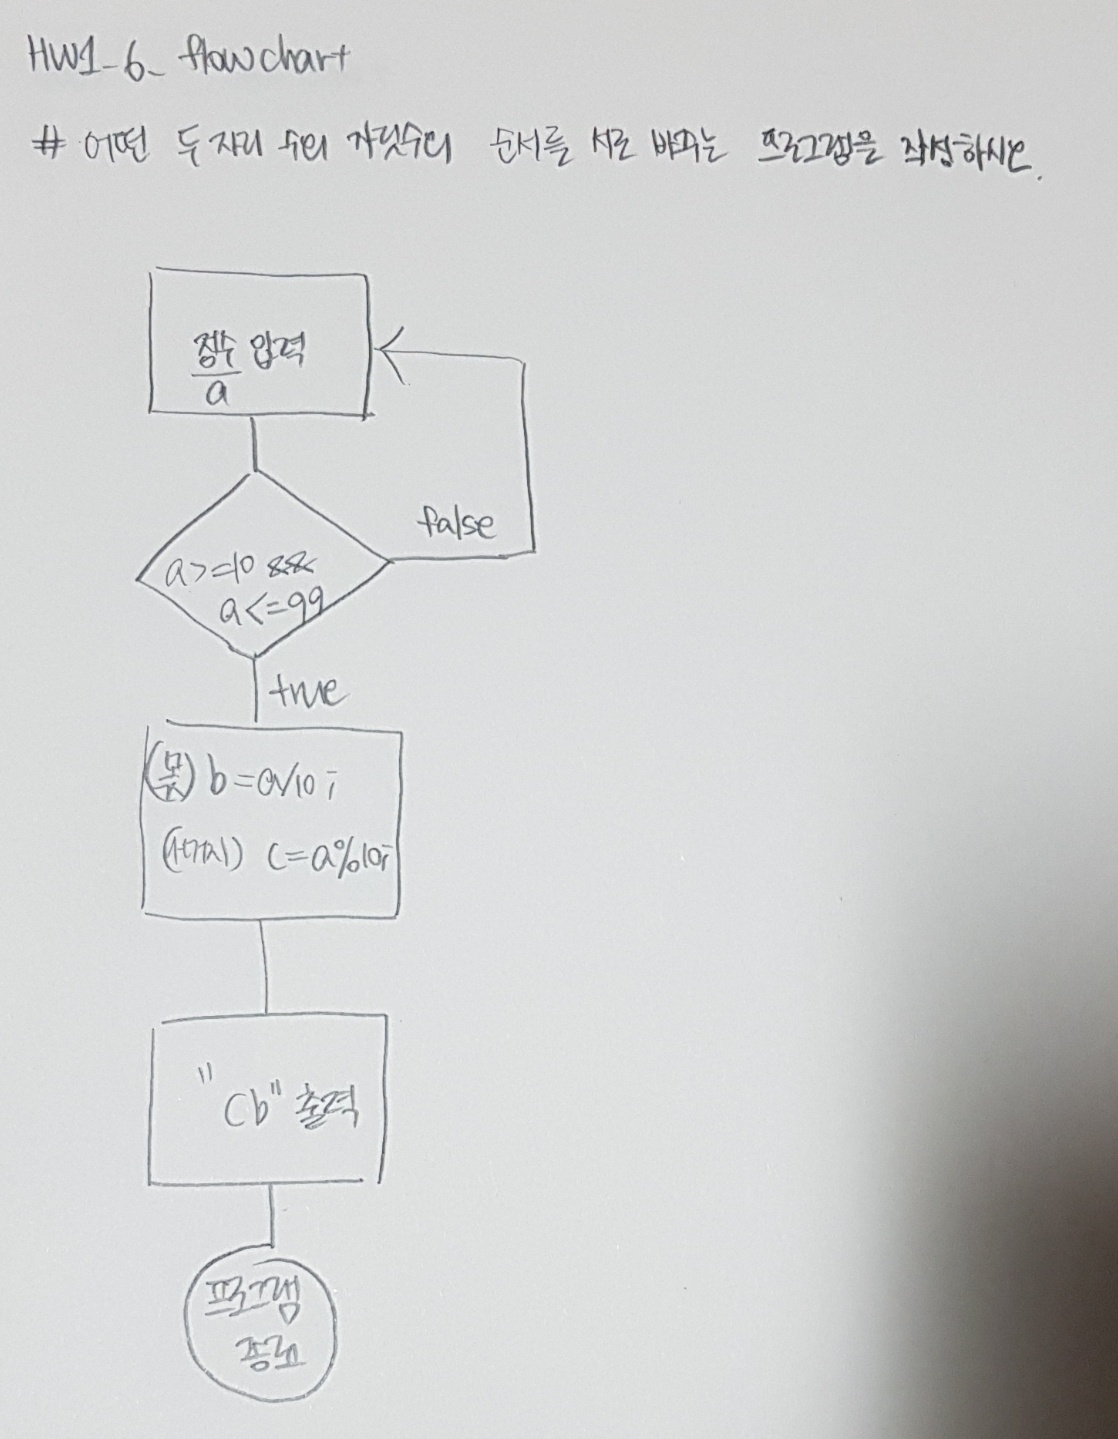 HW1-6_ flowchart
# 어떤 두 자리 수의 자릿수의 순서를 서로 바꾸는 프로그램을 작성하시오.
정수 입력
a
false
a>=10 &&
a<=99
true
(몫) b=a/10;
(나머지) c=a%10;
"cb" 출력
프로그램
종료